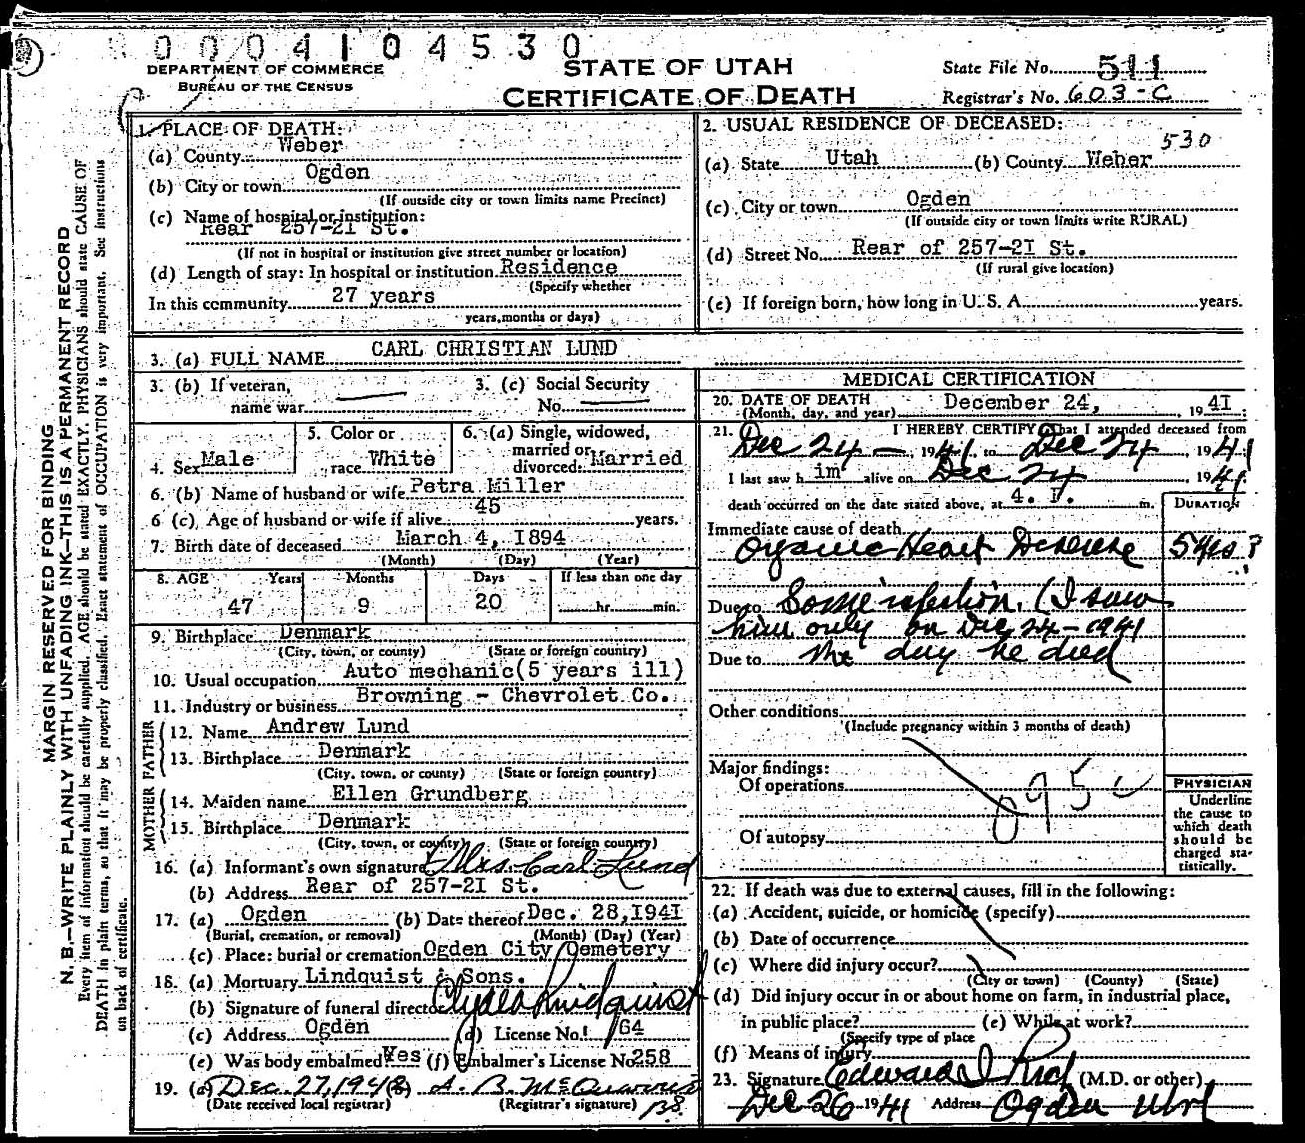 0004104530
DEPARTMENT OF COMMERCE
BUREAU OF THE CENSUS
STATE OF UTAH
CERTIFICATE OF DEATH
State File No. 511
Registrar's No. 603-C
MARGIN RESERVED FOR BINDING
N. B.—WRITE PLAINLY WITH UNFADING INK—THIS IS A PERMANENT RECORD
Every item of information should be carefully supplied. AGE should be stated EXACTLY. PHYSICIANS should state CAUSE OF
DEATH in plain terms, so that it may be properly classified. Exact statement of OCCUPATION is very important. See instructions
on back of certificate.
1. PLACE OF DEATH:
(a) County Weber
(b) City or town Ogden
(If outside city or town limits name Precinct)
(c) Name of hospital or institution:
Rear 257-21 St.
(If not in hospital or institution give street number or location)
(d) Length of stay: In hospital or institution Residence
(Specify whether
In this community 27 years
years, months or days)
2. USUAL RESIDENCE OF DECEASED:
530
(a) State Utah (b) County Weber
(c) City or town Ogden
(If outside city or town limits write RURAL)
(d) Street No. Rear of 257-21 St.
(If rural give location)
(e) If foreign born, how long in U. S. A. years.
3. (a) FULL NAME CARL CHRISTIAN LUND
3. (b) If veteran, name war
3. (c) Social Security No.
4. Sex Male
5. Color or race White
6. (a) Single, widowed, married or divorced: Married
6. (b) Name of husband or wife Petra Miller
6 (c). Age of husband or wife if alive 45 years.
7. Birth date of deceased March 4, 1894
(Month) (Day) (Year)
8. AGE Years Months Days If less than one day
47 9 20 hr. min.
9. Birthplace Denmark
(City, town, or county) (State or foreign country)
10. Usual occupation Auto mechanic(5 years ill)
11. Industry or business Browning - Chevrolet Co.
FATHER
12. Name Andrew Lund
13. Birthplace Denmark
(City, town, or county) (State or foreign country)
MOTHER
14. Maiden name Ellen Grundberg
15. Birthplace Denmark
(City, town, or county) (State or foreign country)
16. (a) Informant's own signature Mrs. Carl Lund
(b) Address Rear of 257-21 St.
17. (a) Ogden (b) Date thereof Dec. 28, 1941
(Burial, cremation, or removal) (Month) (Day) (Year)
(c) Place: burial or cremation Ogden City Cemetery
18. (a) Mortuary Lindquist & Sons.
(b) Signature of funeral director Lindquist
(c) Address Ogden (d) License No. 164
(e) Was body embalmed Yes (f) Embalmer's License No. 258
19. (a) Dec. 27, 194
(Date received local registrar) (Registrar's signature)
MEDICAL CERTIFICATION
20. DATE OF DEATH
(Month, day, and year) December 24, 1941
21. I HEREBY CERTIFY that I attended deceased from
Dec 24 - 1941 to Dec 24, 1941
I last saw him alive on Dec 24, 1941
death occurred on the date stated above, at 4. P. m.
DURATION
Immediate cause of death
Organic Heart Disease 5 yrs ?
Due to Some infection. (I saw
him only on Dec 24-1941
Due to the day he died
Other conditions
(Include pregnancy within 3 months of death)
Major findings:
Of operations
095c
Of autopsy
PHYSICIAN
Underline
the cause to
which death
should be
charged sta-
tistically.
22. If death was due to external causes, fill in the following:
(a) Accident, suicide, or homicide (specify)
(b) Date of occurrence
(c) Where did injury occur?
(City or town) (County) (State)
(d) Did injury occur in or about home on farm, in industrial place,
in public place? (e) While at work?
(Specify type of place
(f) Means of injury
23. Signature Edward I Rich (M.D. or other)
Dec 26 1941 Address Ogden Utah